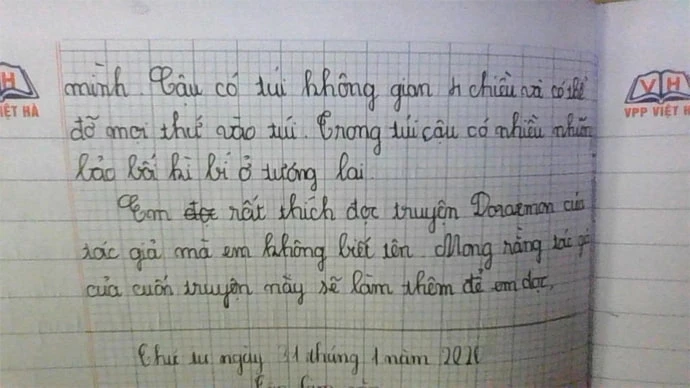 mình. Cậu có túi không gian 4 chiều và có thể
VH
VIỆT HÀ
VH
VPP VIỆT H
đỡ mọi thứ vào túi. Trong túi cậu có nhiều
bảo bối kì bí ở tương lai
Em rất thích đọc truyện Doraemon của
tác giả mà em không biết tên. Mong rằng tác giả
của cuốn truyện này sẽ làm thêm để em đọc.
Thứ tư ngày tháng 1 năm